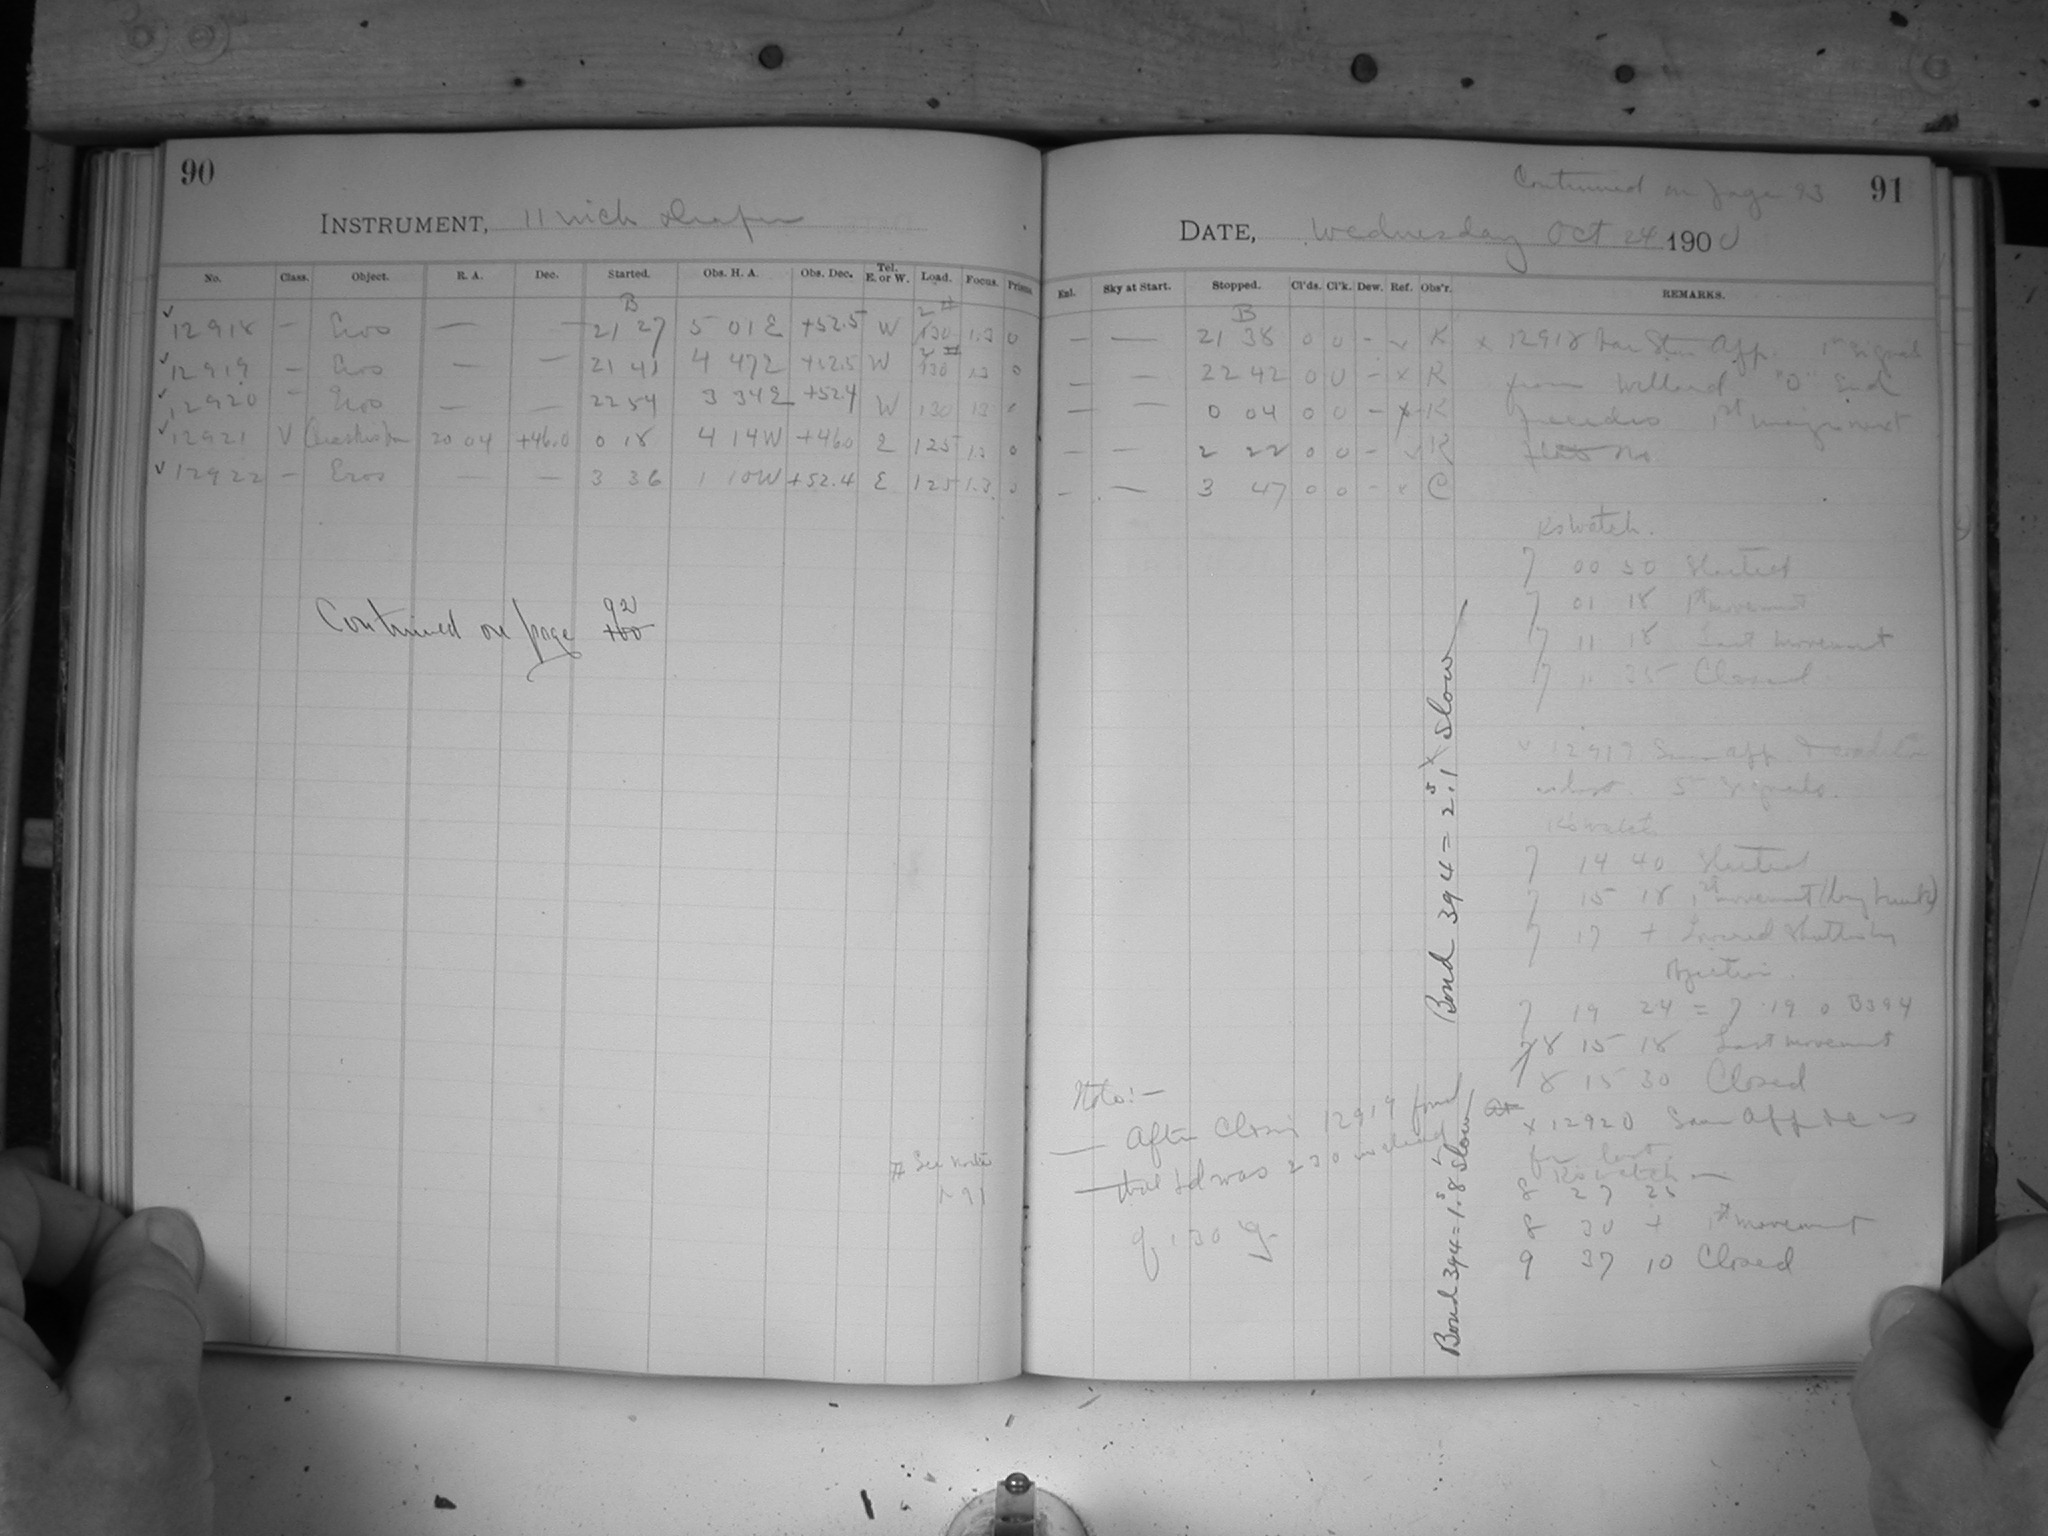 90
INSTRUMENT, 11 inch Draper
No. Class. Object. R. A. Dec. Started. Obs. H. A. Obs. Dec. Tel. E. or W. Load. Focus. Prisms
B
12918 — Eros — — 21 27 5 01 E +52.5 W 130 1.3 0
12919 — Eros — — 21 41 4 47 E +52.5 W 130 1.3 0
12920 — Eros — — 22 54 3 34 E +52.4 W 130 1.3
12921 V 20 04 +46.0 0 18 4 14 W +46.0 E 125 1.3 0
12922 — Eros — — 3 36 1 10 W +52.4 E 125 1.3 0
Continued on page 92
100
# See note
p 91
Continued on page 93
91
DATE, Wednesday Oct 24 1900
Exl. Sky at Start. Stopped. Cl'ds. Cl'k. Dew. Ref. Obs'r. REMARKS.
B
— — 21 38 0 0 - K
— — 22 42 0 0 - x K
— — 0 04 0 0 - x K
— — 2 22 0 0 - K
— — 3 47 0 0 - x C
x 12918 App. 1st signal
from Willard "0" End
precedes 1st
Ks Watch.
7 00 50 Started
7 01 18 1st movement
7 11 18 Last movement
7 11 35 Closed
12919 Same app.
5 signals.
Ks watch
7 14 40 Started
7 15 18 1st movement
7 17 +
7 19 24 = 7 19 0 B394
8 15 18 Last movement
8 15 30 Closed
x 12920 Same App as
for last.
Ks watch —
8 27 25
8 30 + 1st movement
9 37 10 Closed
Bond 394 = 2.s1 slow
Bond 394 = 1.s8 slow
Note:—
After closing 12919 found
that Ld was 230 instead
of 130 g